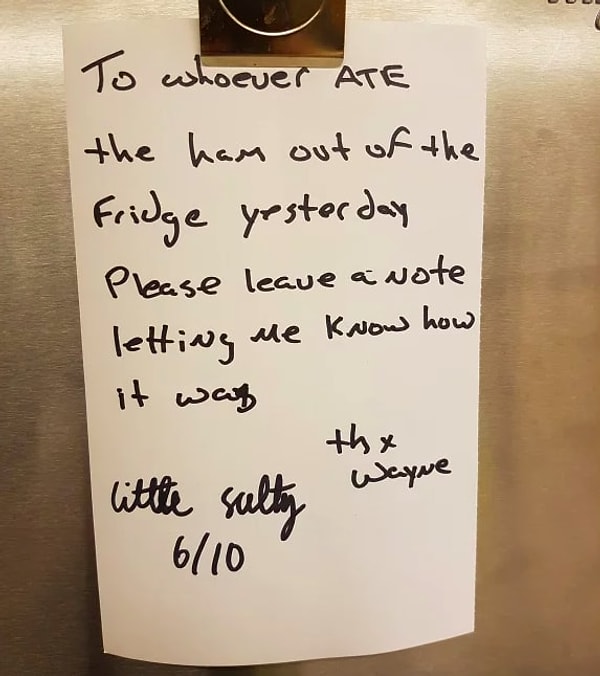 To whoever ATE
the ham out of the
Fridge yesterday
Please leave a Note
letting Me KNow how
it was
thx
Wayne
little salty
6/10